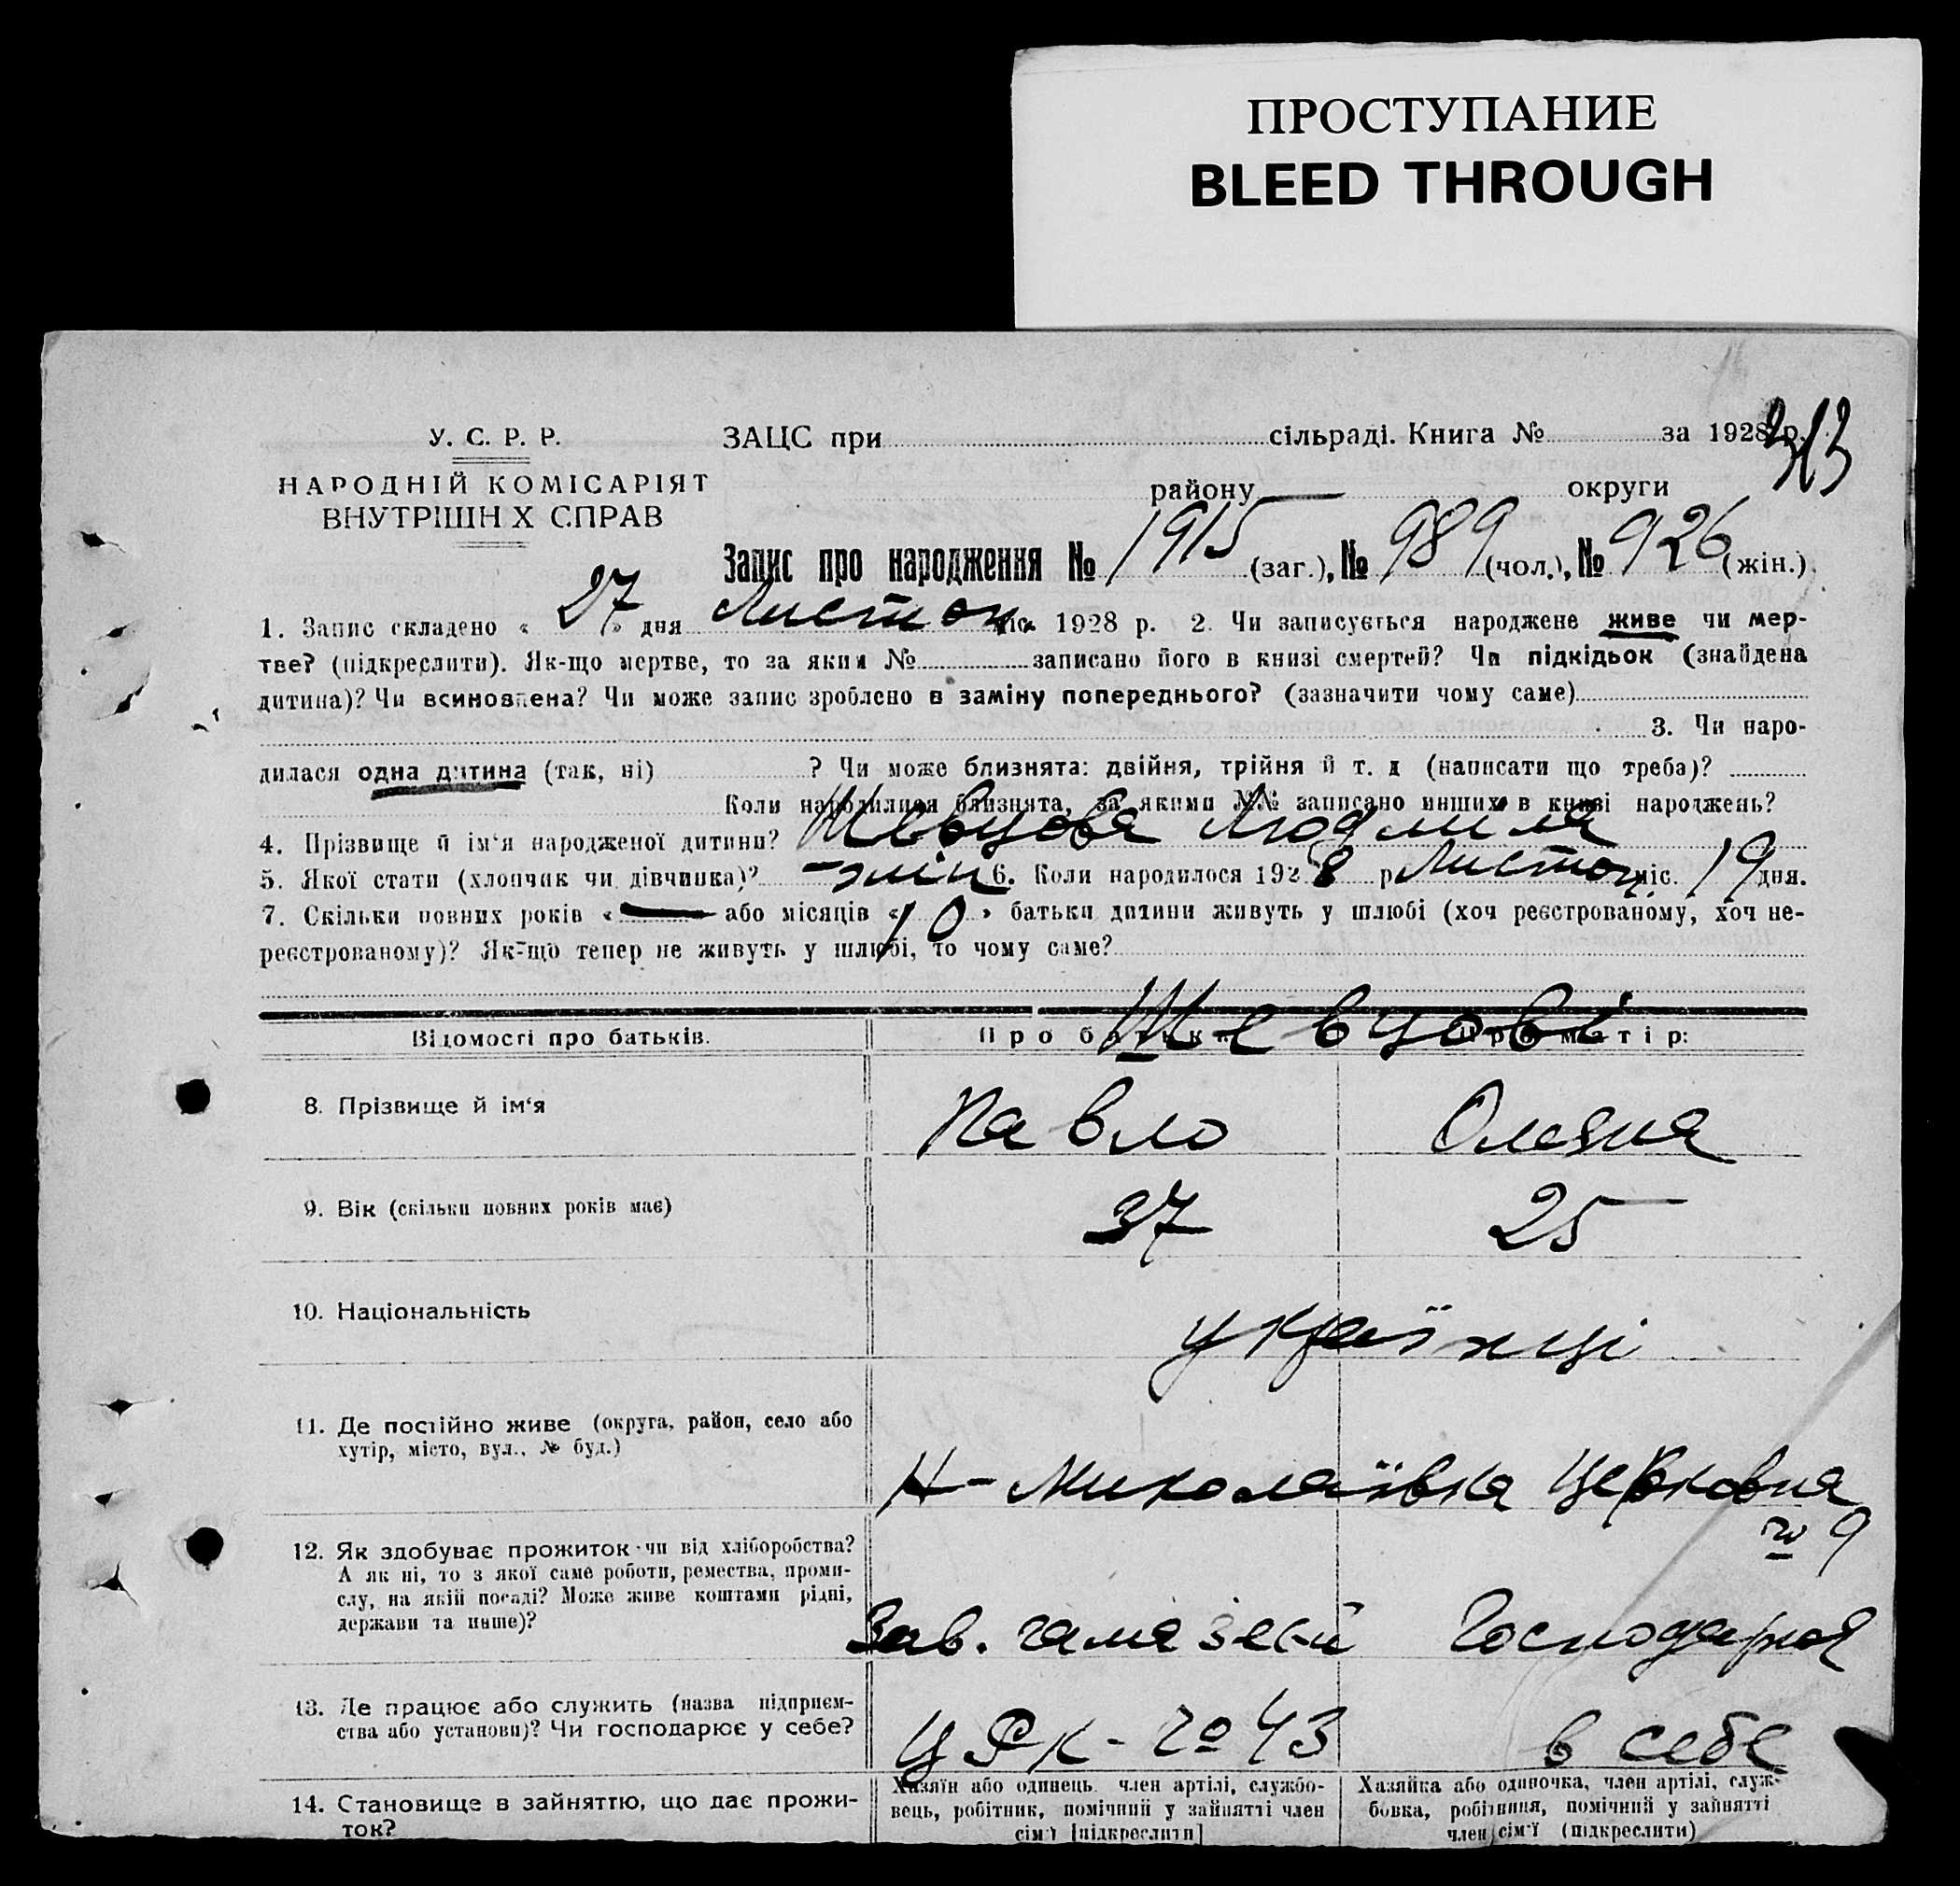 ПРОСТУПАНИЕ
BLEED THROUGH
313
У. С. Р. Р.
ЗАЦС при сільраді. Книга № за 1928 р.
НАРОДНІЙ КОМІСАРІЯТ
ВНУТРІШН Х СПРАВ
району — округи
Запис про народження № 1915 (заг.), № 989 (чол.), № 926 (жін.).
1. Запис складено « 27 » дня Листоп міс. 1928 р. 2. Чи записується народжене живе чи мер-
тве? (підкреслити). Як-що мертве, то за яким № записано його в книзі смертей? Чи підкідьок (знайдена
дитина)? Чи всиновлена? Чи може запис зроблено в заміну попереднього? (зазначити чому саме)
3. Чи наро-
дилася одна дитина (так, ні) ? Чи може близнята: двійня, трійня й т. д (написати що треба)?
Коли народилися близнята, за якими №№ записано инших в книзі народжень?
4. Прізвище й ім'я народженої дитини? Шевцова Людмила
5. Якої стати (хлопчик чи дівчинка)? – жін 6. Коли народилося 1928 р Листоп міс. 19 дня.
7. Скільки повних років « — або місяців « 10 » батьки дитини живуть у шлюбі (хоч реєстрованому, хоч не-
реєстрованому)? Як-що тепер не живуть у шлюбі, то чому саме?
Шевцові
Відомості про батьків. Про батька Про матір:
8. Прізвище й ім'я Павло Олена
9. Вік (скільки повних років має) 37 25
10. Національність українці
11. Де постійно живе (округа, район, село або
хутір, місто, вул., № буд.)
Н-Миколаївка Церковна
№ 9
12. Як здобуває прожиток чи від хліборобства?
А як ні, то з якої саме роботи, ремества, проми-
слу, на якій посаді? Може живе коштами рідні,
держави та инше)?
Зав. Господарка
13. Де працює або служить (назва підприєм-
ства або установи)? Чи господарює у себе?
ЦРК - № 43 в себе
14. Становище в зайняттю, що дає прожи-
ток?
Хазяїн або одинець член артілі, службо-
вець, робітник, помічний у зайнятті член
сім'ї [підкреслити]
Хазяйка або одиночка, член артілі, служ-
бовка, робітниця, помічний у зайнятті
член сім'ї (підкреслити)